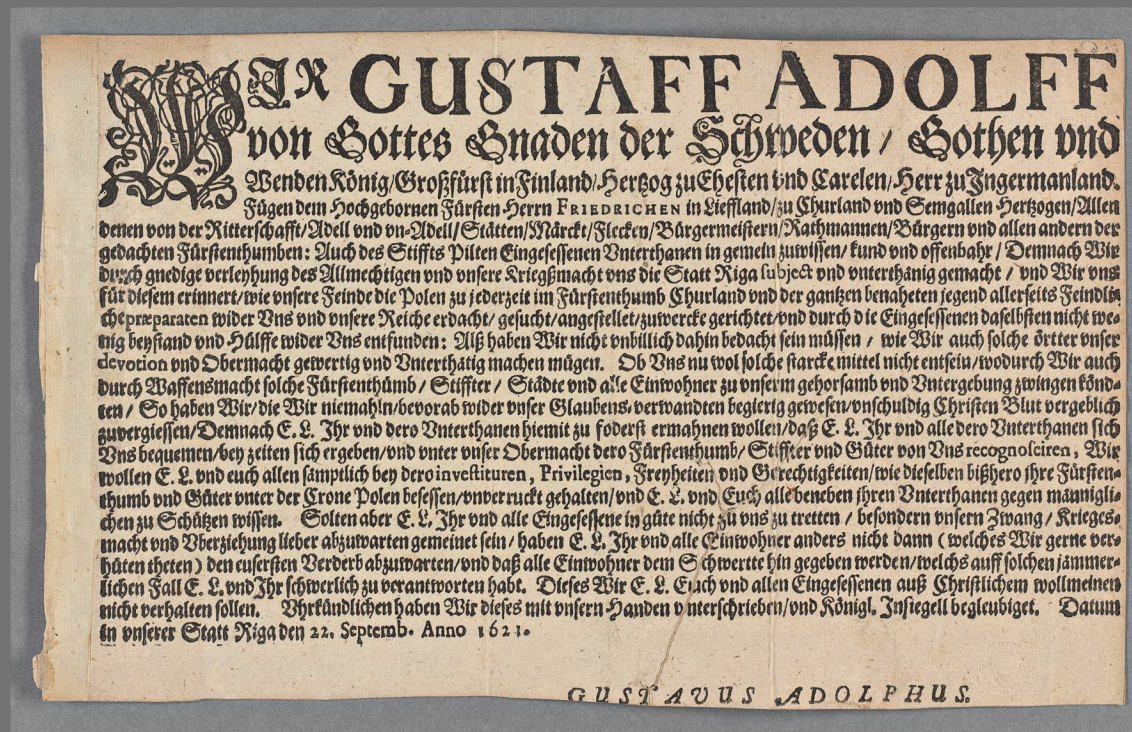 WIR GUSTAFF ADOLFF
von Gottes Gnaden der Schweden / Gothen vnd
Wenden König/Großfürst in Finland/Hertzog zu Ehesten vnd Carelen/Herr zu Ingermanland.
Fügen dem Hochgebornen Fürsten Herrn FRIEDRICHEN in Lieffland/zu Churland vnd Semgallen Hertzogen/Allen
denen von der Ritterschafft/Adell vnd vn-Adell/Stätten/Märckt/Flecken/Bürgermeistern/Rathmannen/Bürgern vnd allen andern der
gedachten Fürstenthumben: Auch des Stiffts Pilten Eingesessenen Vnterthanen in gemein zuwissen/kund vnd offenbahr/Demnach Wir
durch gnedige verleyhung des Allmechtigen vnd vnsere Kriegßmacht vns die Statt Riga subject vnd vnterthänig gemacht / vnd Wir vns
für diesem erinnert/wie vnsere Feinde die Polen zu jederzeit im Fürstenthumb Churland vnd der gantzen benaheten jegend allerseits Feindli-
che præparaten wider Vns vnd vnsere Reiche erdacht/gesucht/angestellet/zuwercke gerichtet/vnd durch die Eingesessenen daselbsten nicht we-
nig beystand vnd Hülffe wider Vns entfunden: Alß haben Wir nicht vnbillich dahin bedacht sein müssen / wie Wir auch solche örtter vnser
devotion vnd Obermacht gewertig vnd Vnterthätig machen mügen. Ob Vns nu wol solche starcke mittel nicht entsein/wodurch Wir auch
durch Waffensmacht solche Fürstenthümb / Stiffter / Städte vnd alle Einwohner zu vnserm gehorsamb vnd Vntergebung zwingen könd-
ten / So haben Wir/die Wir niemahln/bevorab wider vnser Glaubens-verwandten begierig gewesen/vnschuldig Christen Blut vergeblich
zuvergiessen/Demnach E. L. Ihr vnd dero Vnterthanen hiemit zu foderst ermahnen wollen/daß E. L. Ihr vnd alle dero Vnterthanen sich
Vns bequemen/bey zeiten sich ergeben/vnd vnter vnser Obermacht dero Fürstenthumb/Stiffter vnd Güter von Vns recognosciren, Wir
wollen E. L. vnd euch allen sämptlich bey dero investituren, Privilegien, Freyheiten vnd Gerechtigkeiten/wie dieselben bißhero ihre Fürsten-
thumb vnd Güter vnter der Crone Polen besessen/vnverruckt gehalten/vnd E. L. vnd Euch alle beneben ihren Vnterthanen gegen männigli-
chen zu Schützen wissen. Solten aber E. L. Ihr vnd alle Eingesessene in güte nicht zu vns zu tretten / besondern vnsern Zwang / Krieges-
macht vnd Vberziehung lieber abzuwarten gemeinet sein / haben E. L. Ihr vnd alle Einwohner anders nicht dann ( welches Wir gerne ver-
hüten theten ) den eusersten Verderb abzuwarten/vnd daß alle Einwohner dem Schwertte hin gegeben werden/welchs auff solchen jämmer-
lichen Fall E. L. vnd Ihr schwerlich zu verantworten habt. Dieses Wir E. L. Euch vnd allen Eingesessenen auß Christlichem wollmeinen
nicht verhalten sollen. Vhrkündlichen haben Wir dieses mit vnsern Handen vnterschrieben/vnd Königl. Insiegell begleubiget. Datum
in vnserer Statt Riga den 22. Septemb. Anno 1621.
GUSTAVUS ADOLPHUS.